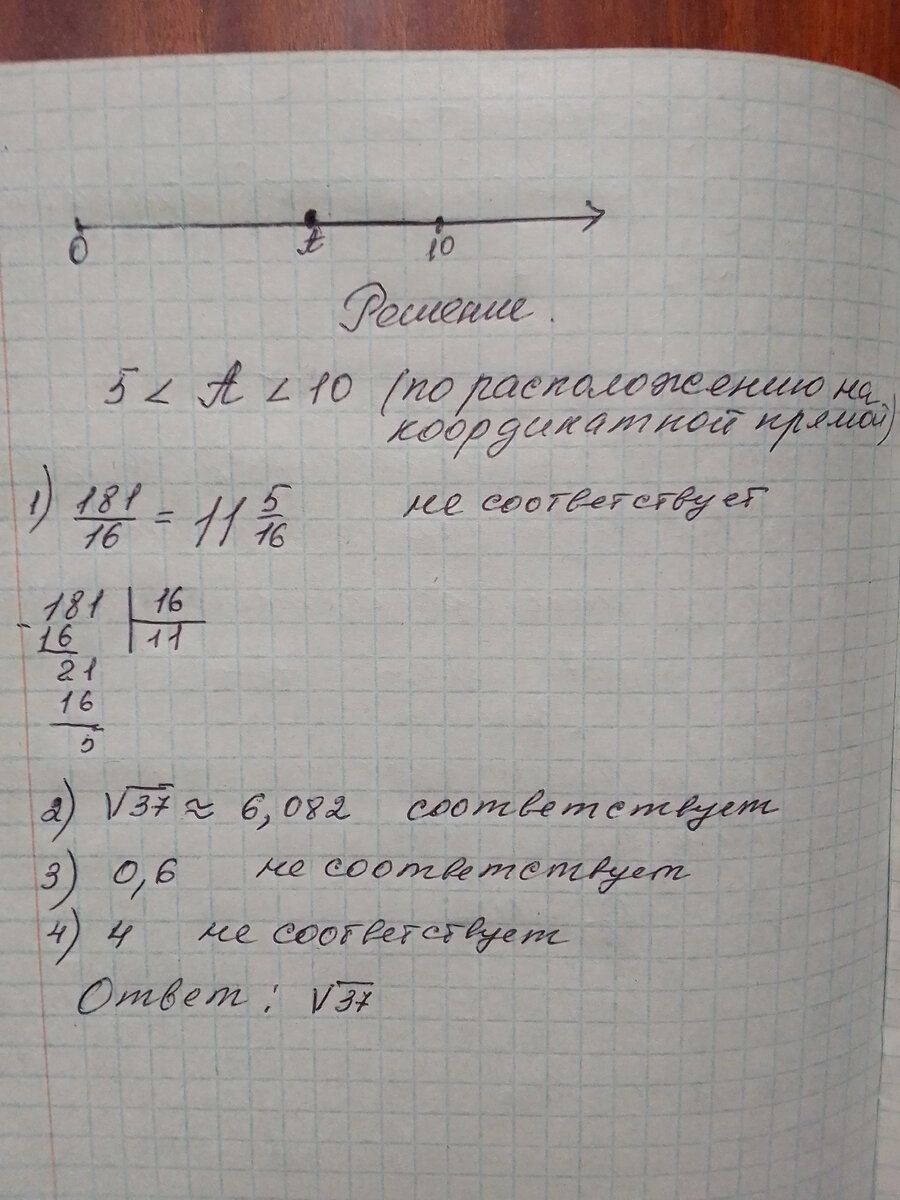 0 A 10
Решение.
5 < A < 10 (по расположению на
координатной прямой)
1) 181/16 = 11 5/16 не соответствует
- 181 | 16
16 | 11
21
16
5
2) √37 ≈ 6,082 соответствует
3) 0,6 не соответствует
4) 4 не соответствует
Ответ: √37